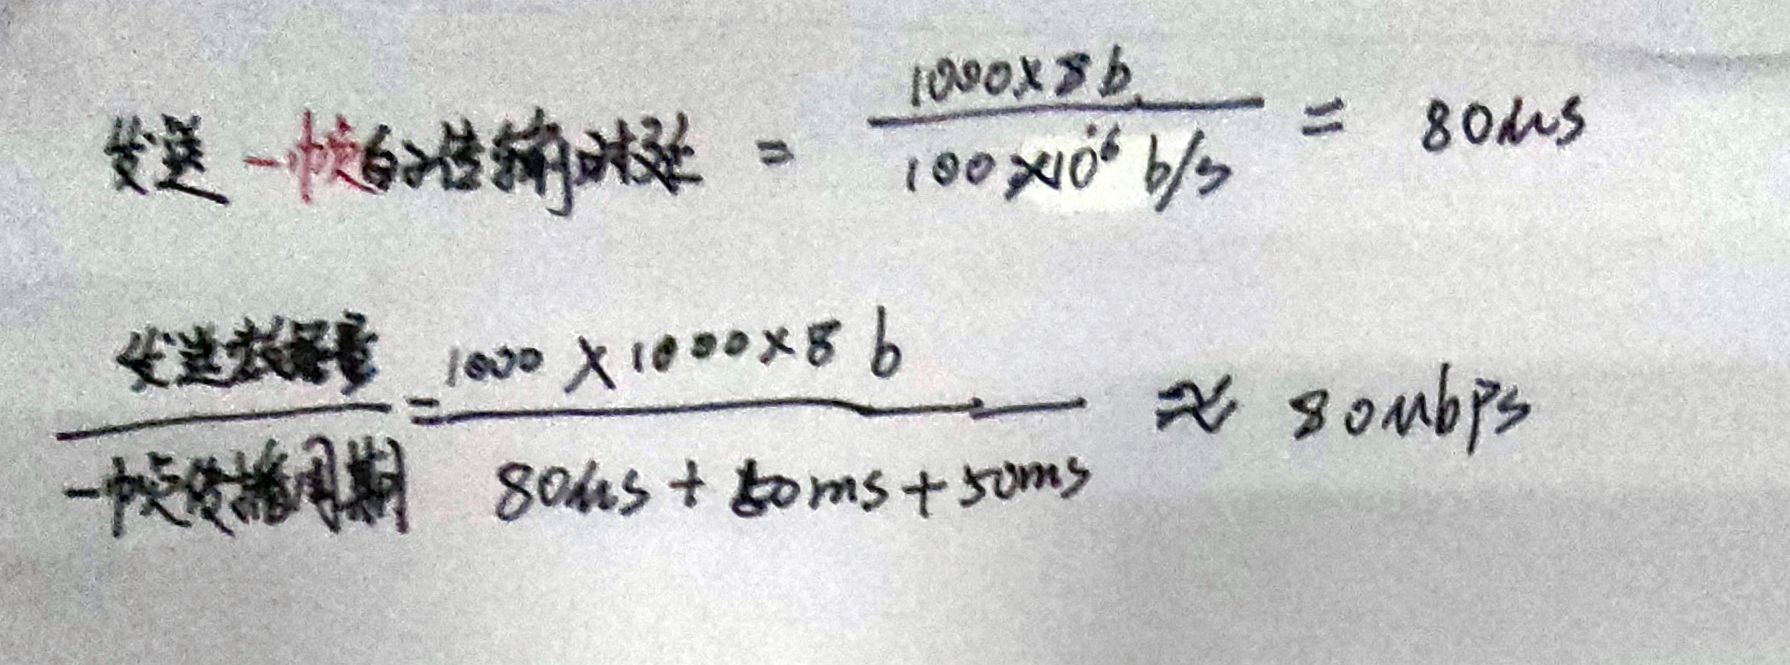 发送一帧的传输时延 = 1000×8b / 100×10⁶ b/s = 80μs
发送数据量 / 一帧传播周期 = 1000×1000×8 b / 80μs + 50ms + 50ms ≈ 80Mbps